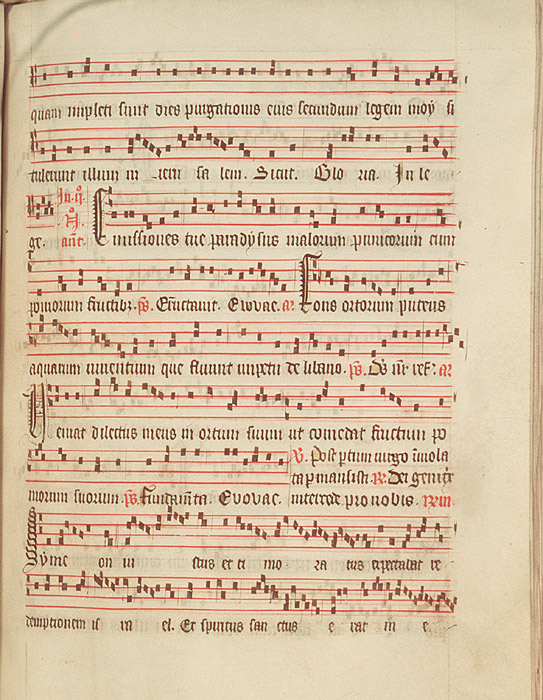 quam impleti sunt dies purgationis eius secundum legem moy si
tulerunt illum in rem sa lem. Sicut. Glo ria. In le
In. ii. q.
ge. ant.
E missiones tue paradysus malorum punicorum cum
pomorum fructibz. ps. Eructauit. Evovae. a.
Fons ortorum puteus
aquarum uiuentium que fluunt impetu de libano. ps. Ds nr ref. a.
V eniat dilectus meus in ortum suum ut comedat fructum po
V. Post ptum uirgo inuiola
ta pmansisti. R. Dei genitx
morum suorum. ps. Fundamta. Evovae.
intercede pro nobis.
Syme on iu stus et ti mo ra tus expectabat re
demptionem is ra el. Et spiritus san ctus e rat in e